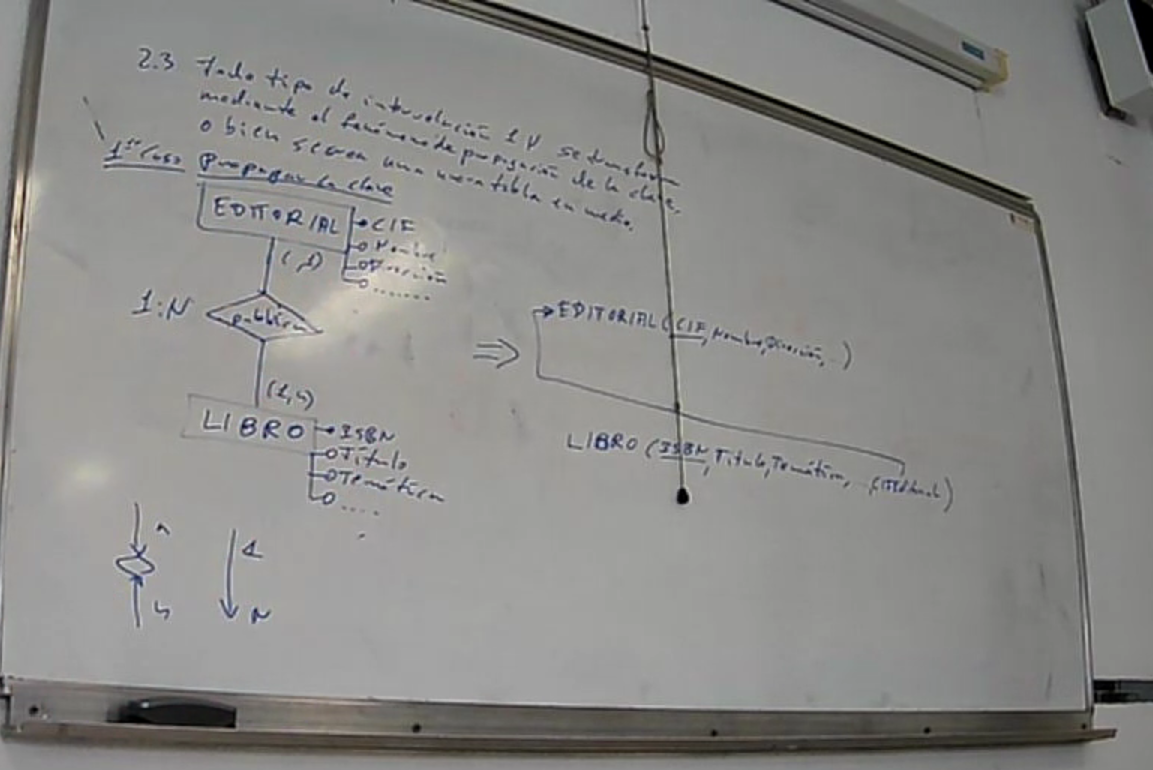 2.3 Todo tipo de interrelación 1:N se transforma
mediante el fenómeno de propagación de la clave,
o bien se crea una nueva tabla en medio.
1er Caso Propagar la clave
EDITORIAL
CIF
Nombre
Dirección
.......
(,1)
1:N
publica
(1,n)
LIBRO
ISBN
Título
Temática
....
⇒
EDITORIAL (CIF, Nombre, Dirección, ...)
LIBRO (ISBN, Título, Temática, ...
1
N